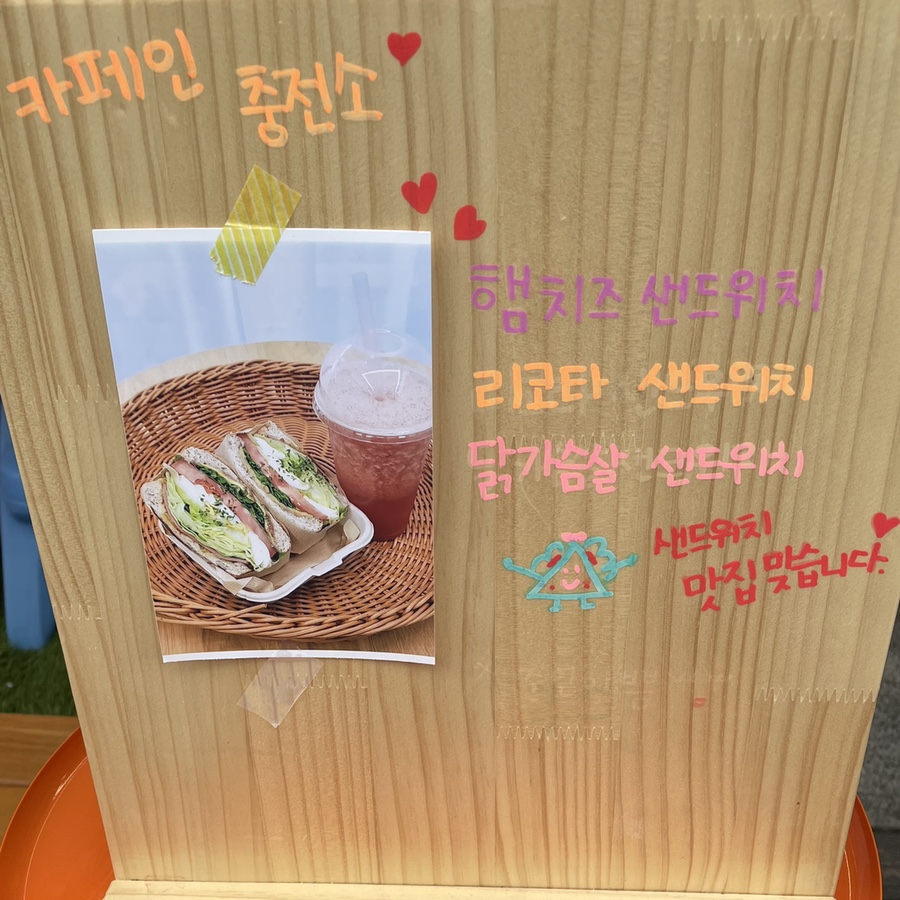 카페인 충전소
햄치즈 샌드위치
리코타 샌드위치
닭가슴살 샌드위치
샌드위치
맛집 맞습니다.